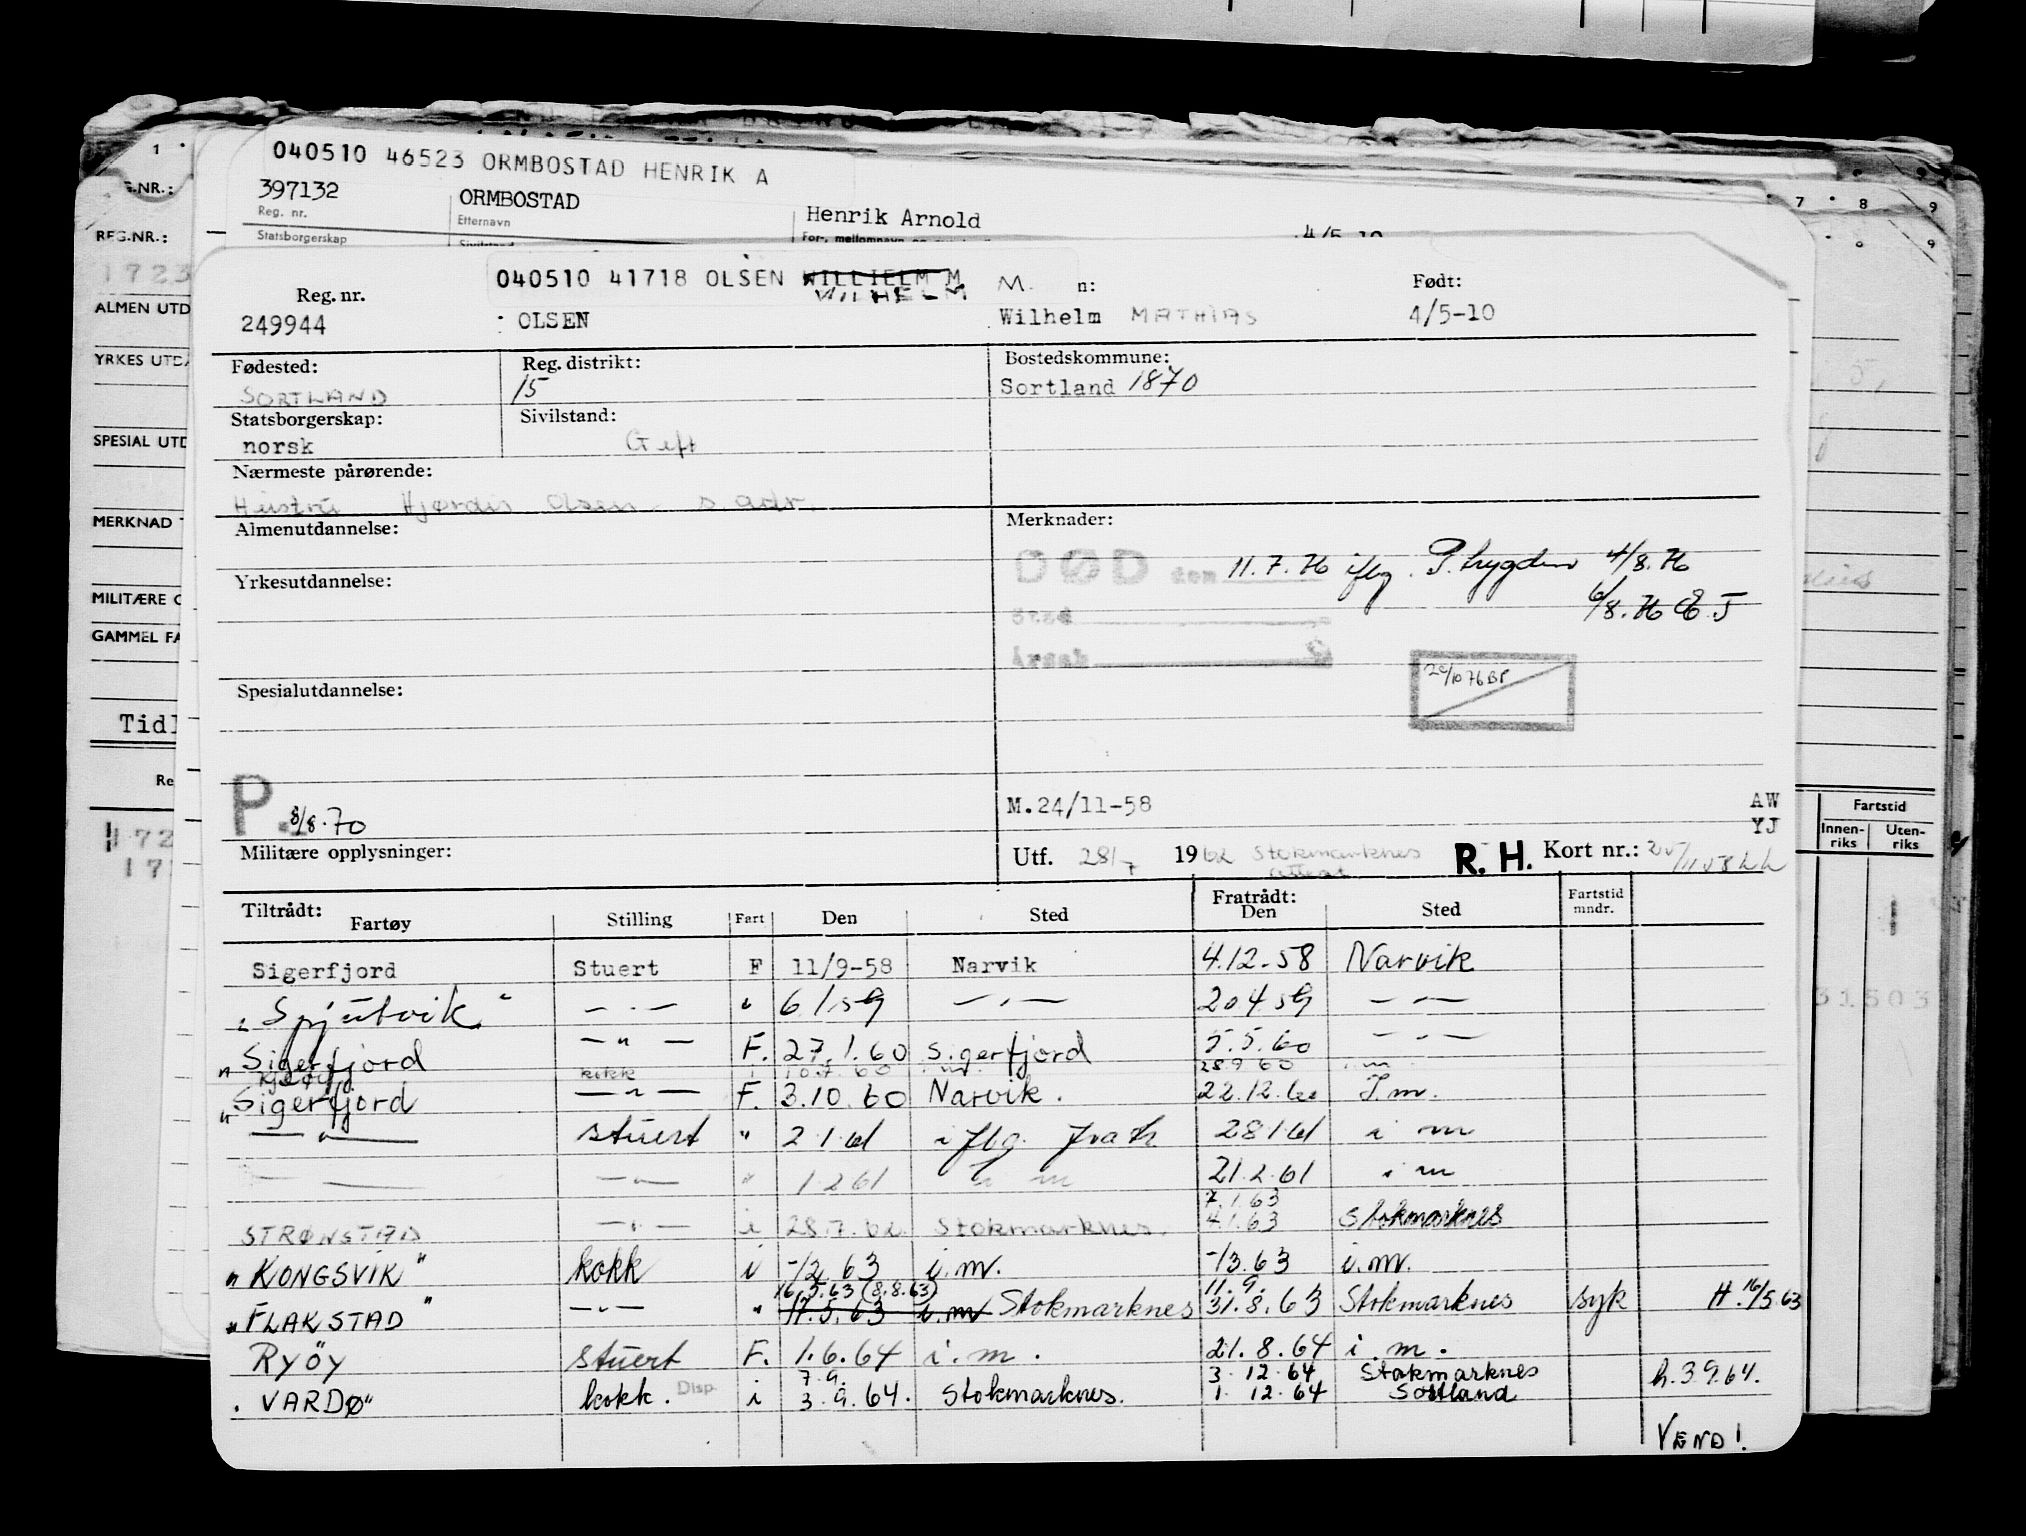 040510 46523 ORMBOSTAD HENRIK A
397132 ORMBOSTAD Henrik Arnold 4/5-10
Reg. nr. Etternavn
Statsborgerskap
1 7 8 9
REG.NR.:
1723
ALMEN UTD
YRKES UTD
SPECIAL UTD
MERKNAD
MILITÆRE
GAMMEL
Tidl
Fartstid
Innen-riks Uten-riks
31503
040510 41718 OLSEN WILLIELM M M. n: Født:
WILHELM
Reg. nr.
249944 OLSEN Wilhelm MATHIAS 4/5-10
Fødested: Reg. distrikt: Bostedskommune:
SORTLAND 15 Sortland 1870
Statsborgerskap: Sivilstand:
norsk Gift
Nærmeste pårørende:
Hustru Hjørdis Olsen s. adr.
Almenutdannelse: Merknader:
DØD den 11.7.76 iflg. P.trygden 4/8.76
6/8.76
Sted
Årsak
Yrkesutdannelse:
20/10 76 BP
Spesialutdannelse:
P. 8/8.70
M.24/11-58 AW
YJ
Militære opplysninger: Utf. 28/7 1962 Stokmarknes R. H. Kort nr.:
attest
Tiltrådt: Fratrådt: Fartstid
Fartøy Stilling Fart Den Sted Den Sted mndr.
Sigerfjord Stuert F 11/9-58 Narvik 4.12.58 Narvik
"Spjutvik" — " — " 6.1.59 — " — 20.4.59 — " —
"Sigerfjord — " — F. 27.1.60 Sigerfjord 5.5.60 — " —
kokk i 10.7.60 i.m. 28.9.60 i.m.
"Sigerfjord — " — F. 3.10.60 Narvik. 22.12.60 I.m.
— " — stuert " 2.1.61 iflg. 28.1.61 i m
— — — " — " 1.2.61 i m 21.2.61 i m
7.1.63
STRØNSTAD — " — i 28.7.62 Stokmarknes. 4.1.63 Stokmarknes
"KONGSVIK" kokk i -/2.63 i.m. -/3.63 i.m.
16.5.63 (8.8.63) 11.9.
"FLAKSTAD" — " — " 17.5.63 i.m Stokmarknes 31.8.63 Stokmarknes syk H.16/5.63
Ryöy stuert F. 1.6.64 i.m. 21.8.64 i.m.
7.9. 3.12.64 Stokmarknes
"VARDØ" kokk. Disp i 3.9.64. Stokmarknes. 1.12.64 Sortland h.3.9.64.
VEND!